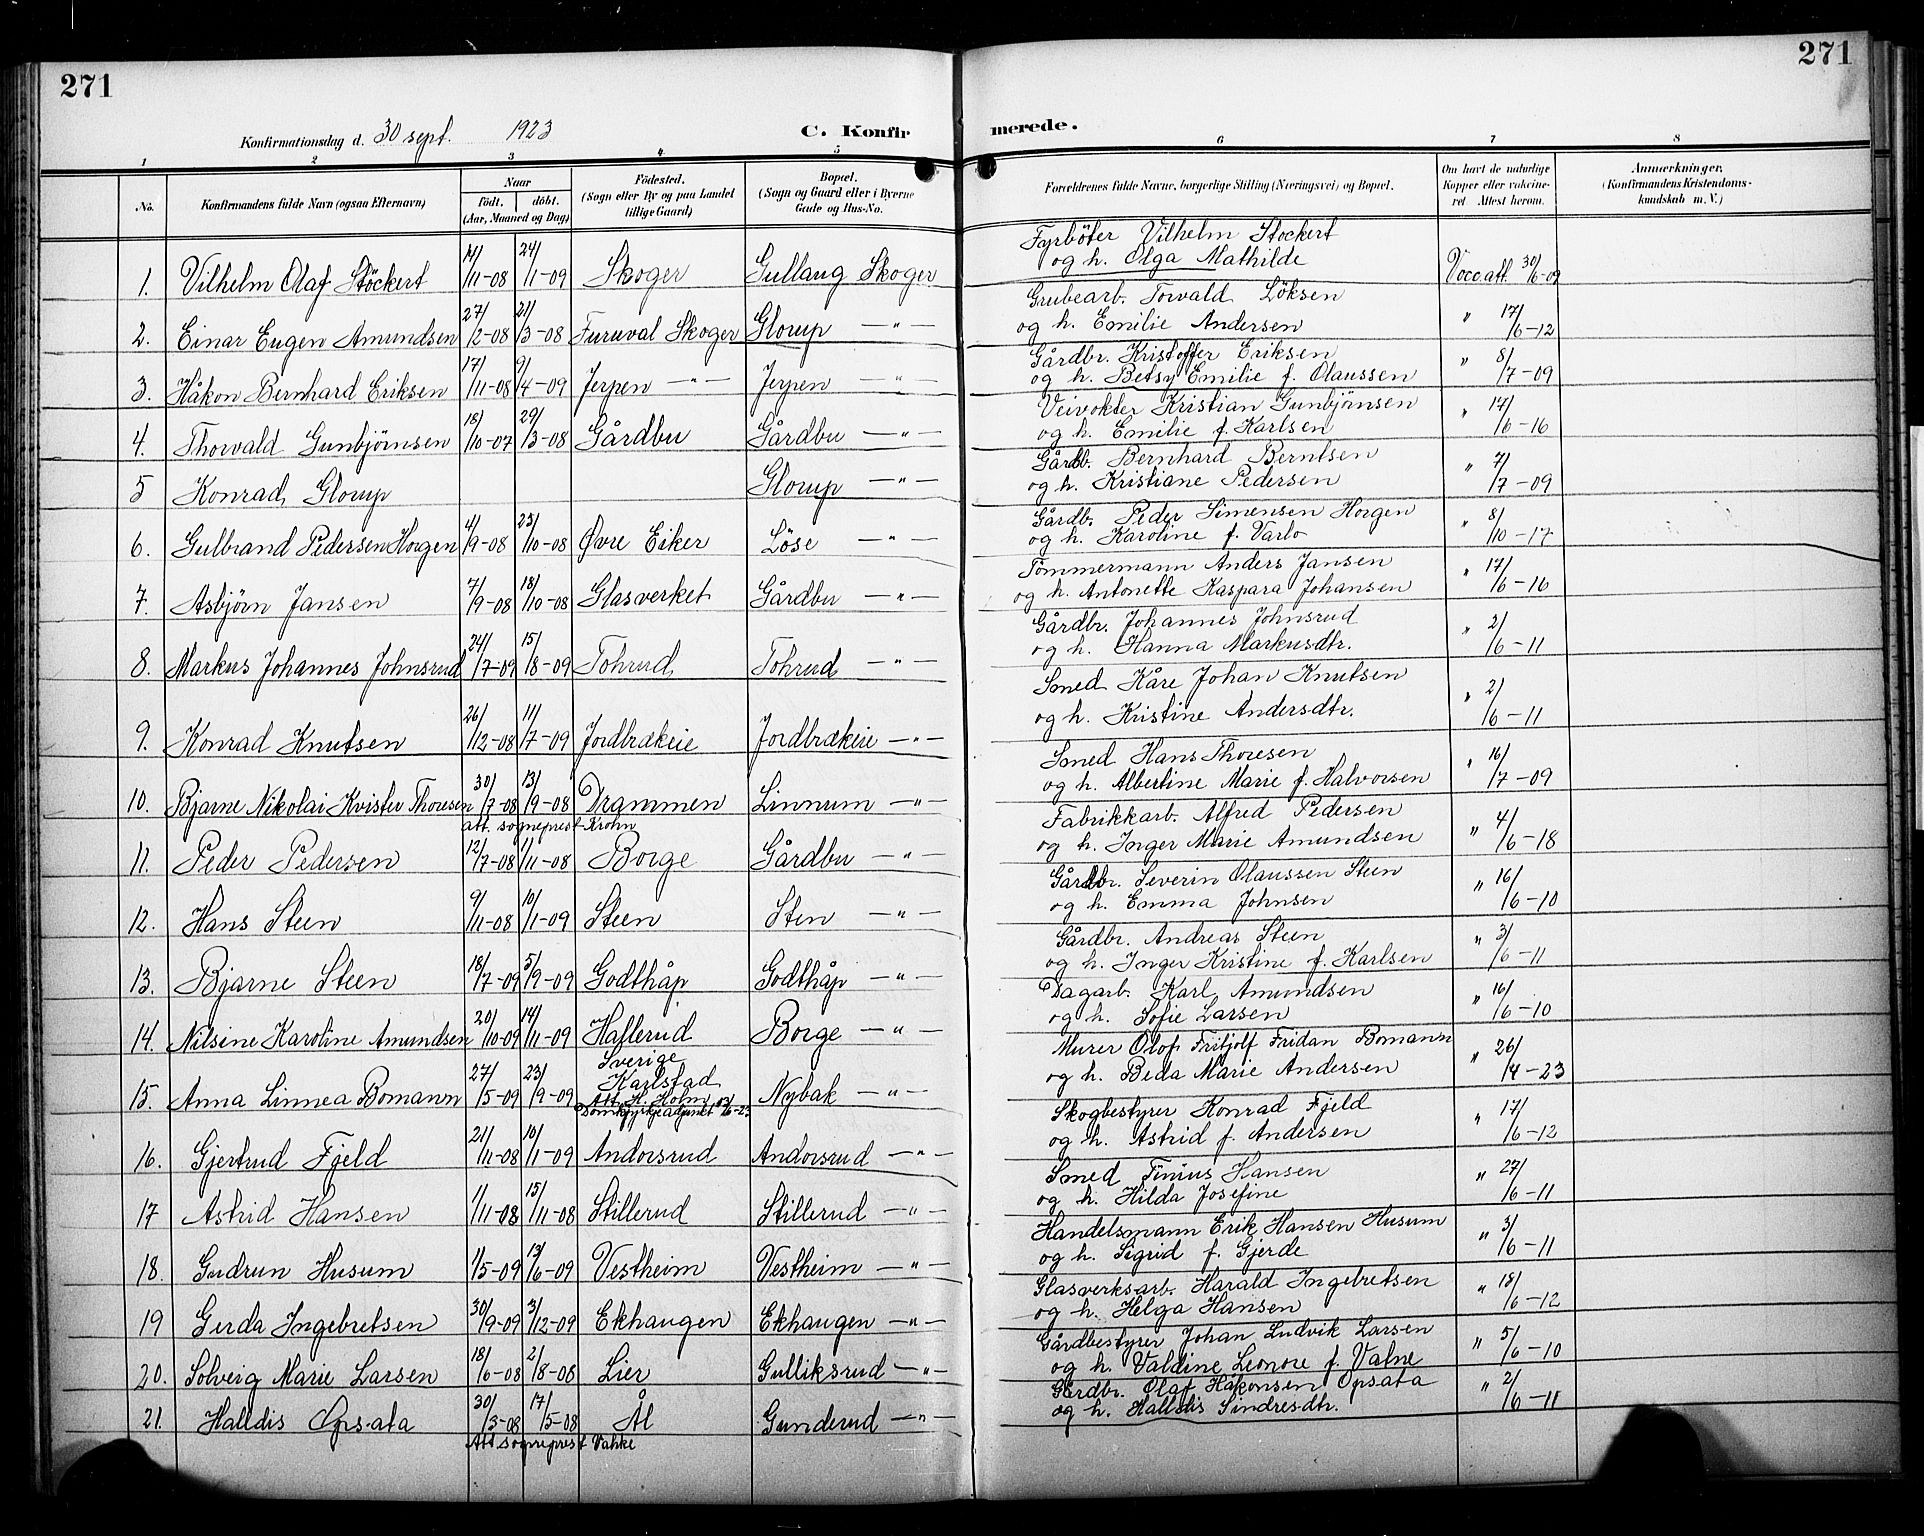 271
271
Konfirmationsdag d. 30 sept. 1923
C. Konfir
merede.
1 2 3 4 5 6 7 8
No. Konfirmandens fulde Navn (ogsaa Efternavn) Naar födt. döbt. (Aar, Maaned og Dag) Födested. (Sogn eller By og paa Landet tillige Gaard) Bopæl. (Sogn og Gaard eller i Byerne Gade og Hus-No. Forældrenes fulde Navne, borgerlige Stilling (Næringsvei) og Bopæl. Om havt de naturlige Kopper eller vakcineret. Attest herom. Anmærkninger. (Konfirmandens Kristendomskundskab m. V.)
Fyrböter Vilhelm Stockert
1. Vilhelm Olaf Stöckert /11-08 24/1-09 Skoger Gullaug Skoger og h. Olga Mathilde Vacc. att. 30/6-09
Grubearb. Torvald Löksen
2. Einar Eugen Amundsen 27/2-08 21/3-08 Furuval Skoger Glorup —"— og h. Emilie Andersen " 17/6-12
Gårdbr. Kristoffer Eriksen
3. Håkon Bernhard Eriksen 17/11-08 9/4-09 Jerpen —"— Jerpen —"— og h. Betsy Emilie f. Olaussen " 8/7-09
Veivokter Kristian Gunbjörnsen
4. Thorvald Gunbjörnsen 18/10-07 29/3-08 Gårdbu Gårdbu —"— og h. Emilie f. Karlsen " 17/6-16
Gårdb. Bernhard Berntsen
5 Konrad Glorup Glorup —"— og h. Kristiane Pedersen " 7/7-09
Gårdb. Peder Simensen Horgen
6. Gulbrand Pedersen Horgen 4/9-08 25/10-08 Øvre Eiker Löse —"— og h. Karoline f. Varlo " 8/10-17
Tömmermann Anders Jansen
7. Asbjörn Jansen 7/9-08 18/10-08 Glasverket Gårdbu —"— og h. Antonette Kaspara Johansen " 17/6-16
Gårdbr. Johannes Johnsrud
8. Markus Johannes Johnsrud 24/7-09 15/8-09 Tohrud Tohrud —"— og h. Hanna Markusdtr. " 2/6-11
Smed Kåre Johan Knutsen
9. Konrad Knutsen 26/12-08 11/7-09 Jordbrækeie Jordbrækeie —"— og h. Kristine Andersdtr. " 2/6-11
Smed Hans Thoresen
10. Bjarne Nikolai Kvister Thoresen 30/7-08 13/9-08 Drammen Linnum —"— og h. Albertine Marie f. Halvorsen " 16/7-09
att. sogneprest Krohn
Fabrikkarb. Alfred Pedersen
11. Peder Pedersen 12/7-08 1/11-08 Borge Gårdbu —"— og h. Inger Marie Amundsen " 4/6-18
Gårdbr. Severin Olaussen Steen
12. Hans Steen 9/11-08 10/1-09 Steen Sten —"— og h. Emma Johnsen " 16/6-10
Gårdbr. Andreas Steen
13. Bjarne Steen 18/7-09 5/9-09 Godthåp Godthåp —"— og h. Inger Kristine f. Karlsen " 3/6-11
Dagarb. Karl Amundsen
14. Nilsine Karoline Amundsen 20/10-09 14/11-09 Hallerud Borge —"— og h. Sofie Larsen " 16/6-10
Murer Olof Fritjolf Fridan Bomann
15. Anna Linnea Bomann 27/5-09 23/9-09 Sverige Karlstad Att. H. Holm Domkyrkjeadjunkt Nybak —"— og h. Beda Marie Andersen " 26/4-23
Skogbestyrer Konrad Fjeld
16. Gjertrud Fjeld 21/11-08 10/1-09 Andorsrud Andorsrud —"— og h. Astrid f. Andersen " 17/6-12
Smed Tinius Hansen
17 Astrid Hansen 1/11-08 15/11-08 Stillerud Stillerud —"— og h. Hilda Josefine " 27/6-11
Handelsmann Erik Hansen Husum
18. Gudrun Husum 1/5-09 13/6-09 Vestheim Vestheim —"— og h. Sigrid f. Gjerde " 3/6-11
Glasverksarb. Harald Ingebretsen
19 Gerda Ingebretsen 30/9-09 3/12-09 Ekhaugen Ekhaugen —"— og h. Helga Hansen " 18/6-12
Gårdbestyrer Johan Ludvik Larsen
20. Solveig Marie Larsen 18/6-08 2/8-08 Lier Gulliksrud —"— og h. Valdine Leonore f. Valne " 5/6-10
Gårdbr. Olaf Håkonsen Opsata
21. Halldis Opsata 30/3-08 17/5-08 Ål Gunderud —"— og h. Halldis Sindresdtr. " 2/6-11
Att. sogneprest Vakke